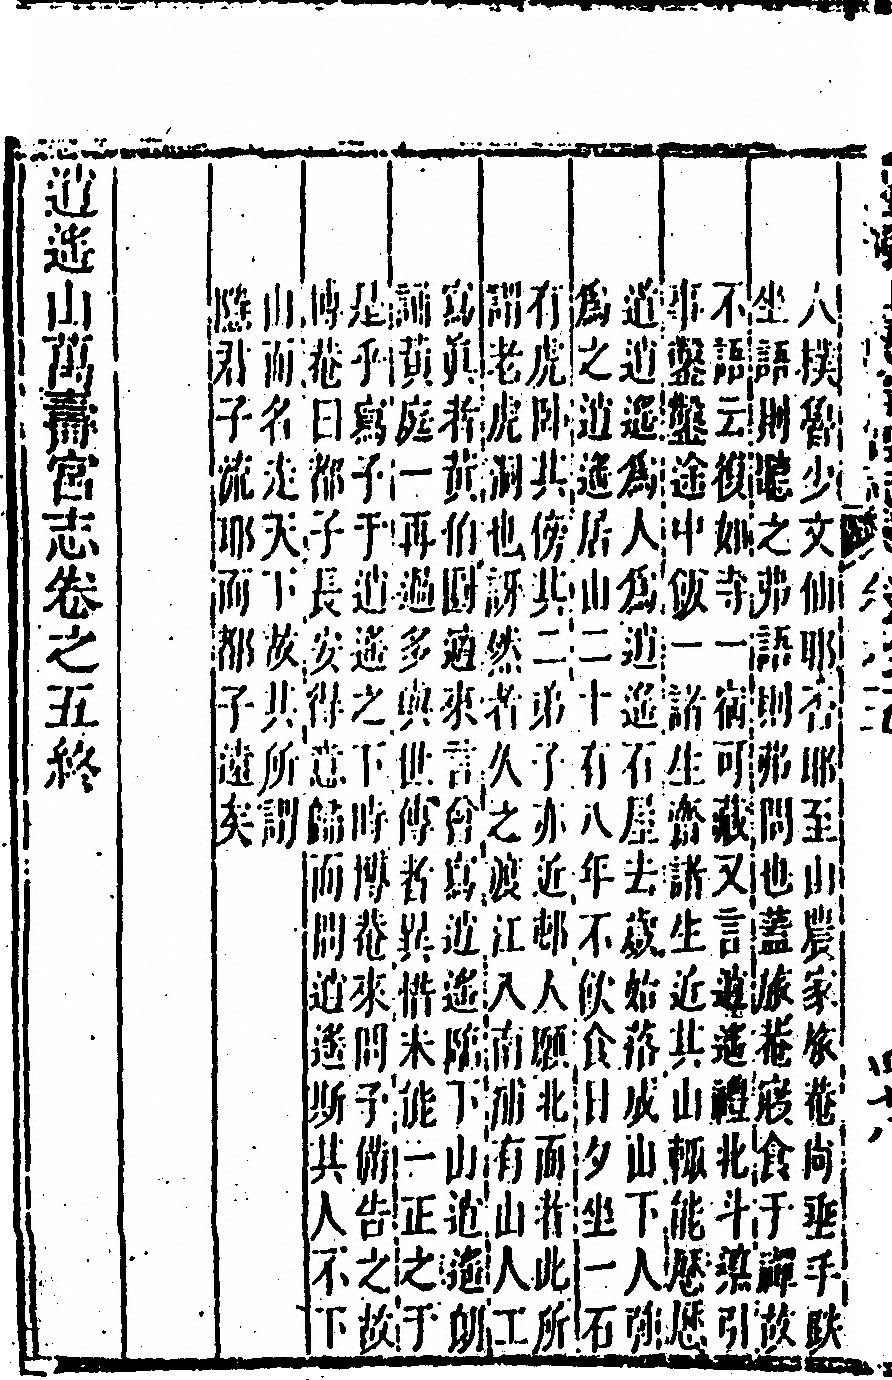 人樸魯少文仙耶否耶至山農家旅菴尚垂手趺
坐語則聽之弗語則弗問也蓋旅菴寢食于禪故
不語云復如寺一宿可藏又言逍遙禮北斗籙引
事鑿鑿途中飯一諸生齋諸生近其山輒能歷歷
道逍遙為人為逍遙石屋去歲始落成山下人弥
為之逍遙居山二十有八年不飲食日夕坐一石
有虎卧其傍其二弟子亦近邨人願北面者此所
謂老虎洞也訝然者久之渡江入南浦有山人工
寫真者黃伯圖適來言曾寫逍遙臨下山逍遙朗
誦黃庭一再過多與世傳者異惜未能一正之于
是乎寫子于逍遙之下時博菴來問予備告之故
博菴曰都子長安得意歸而問逍遙斯其人不下
山而名走天下故其所謂
隱君子流耶而都子遠矣
逍遙山萬壽宮志卷之五終